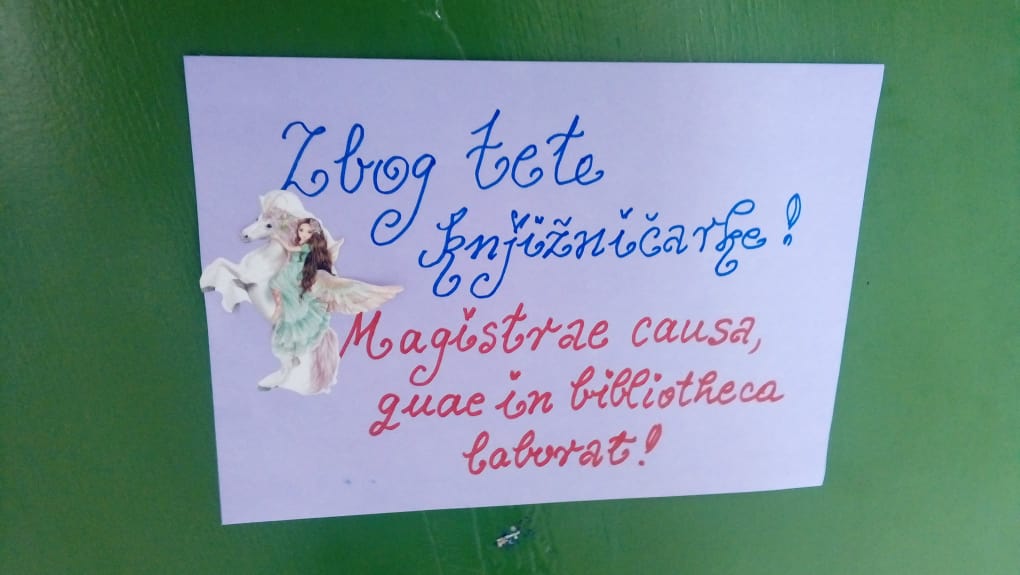 Zbog tete
knjižničarke!
Magistrae causa,
quae in bibliotheca
laborat!